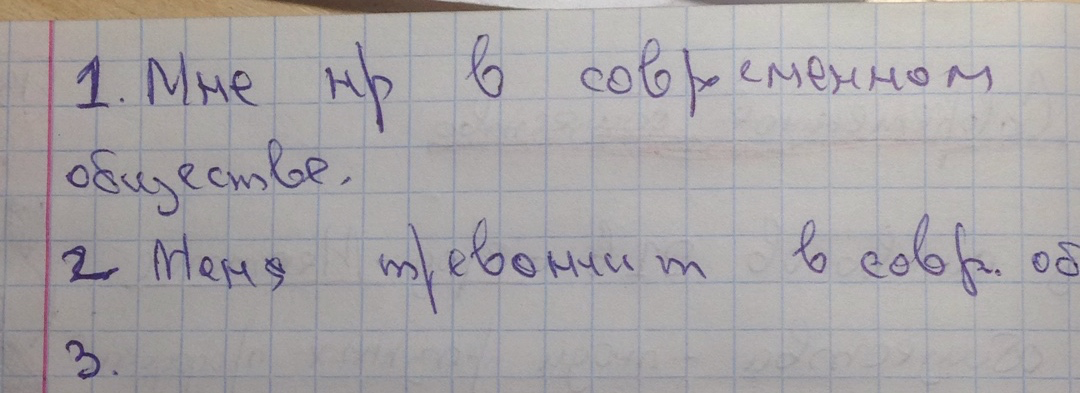 1. Мне нр в современном
обществе.
2 Меня тревожит в совр. об
3.